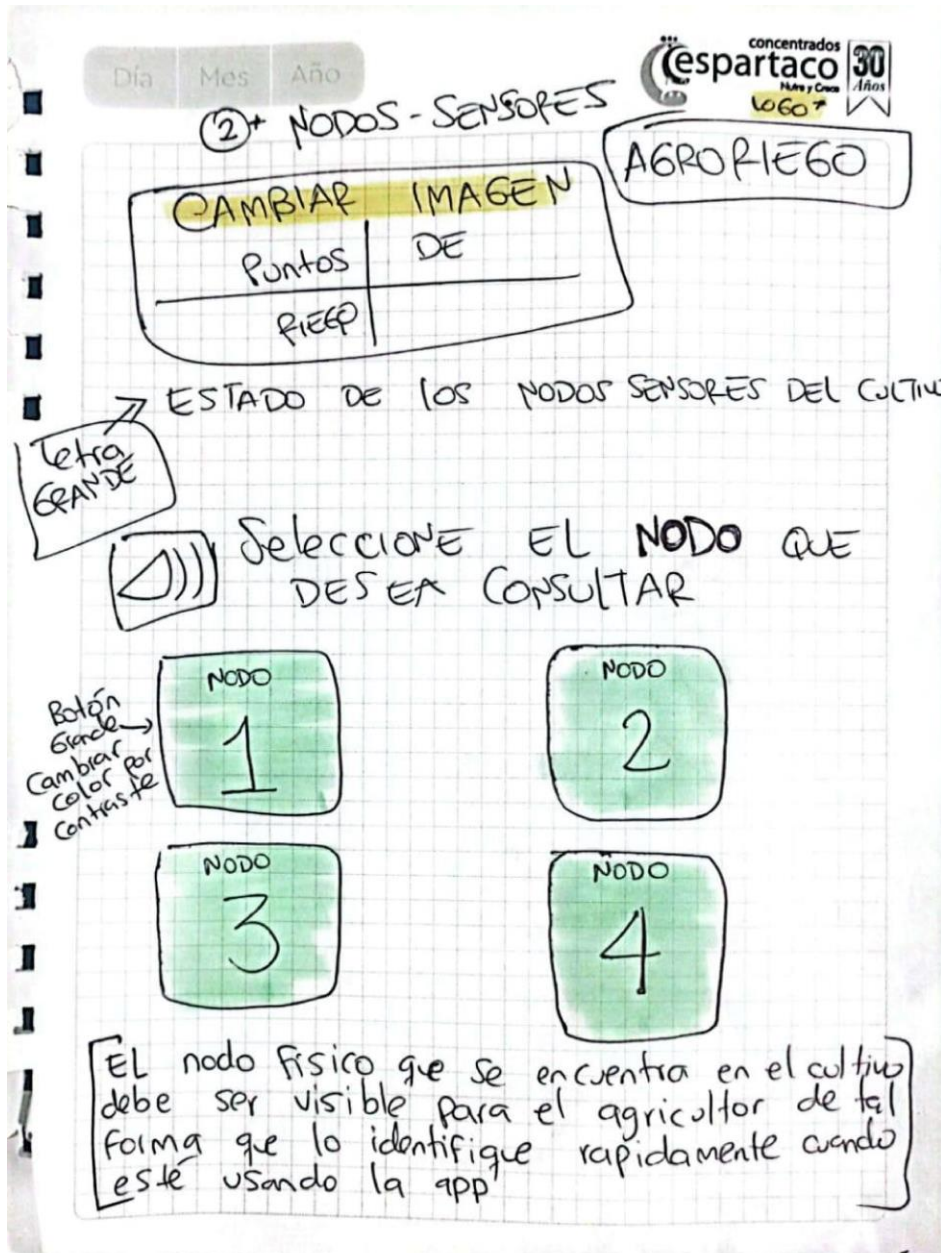 Día Mes Año
concentrados
espartaco
Nutre y Crece
30
Años
LOGO +
② + NODOS - SENSORES
AGRORIEGO
CAMBIAR IMAGEN
Puntos DE
RIEGO
ESTADO DE los NODOS SENSORES DEL CULTIV
letra
GRANDE
Seleccione EL NODO QUE
DESEA CONSULTAR
NODO
1
NODO
2
Botón
Grande
Cambiar
color por
contraste
NODO
3
NODO
4
EL nodo Fisico que se encuentra en el cultivo
debe ser visible para el agricultor de tal
forma que lo identifique rapidamente cuando
esté usando la app